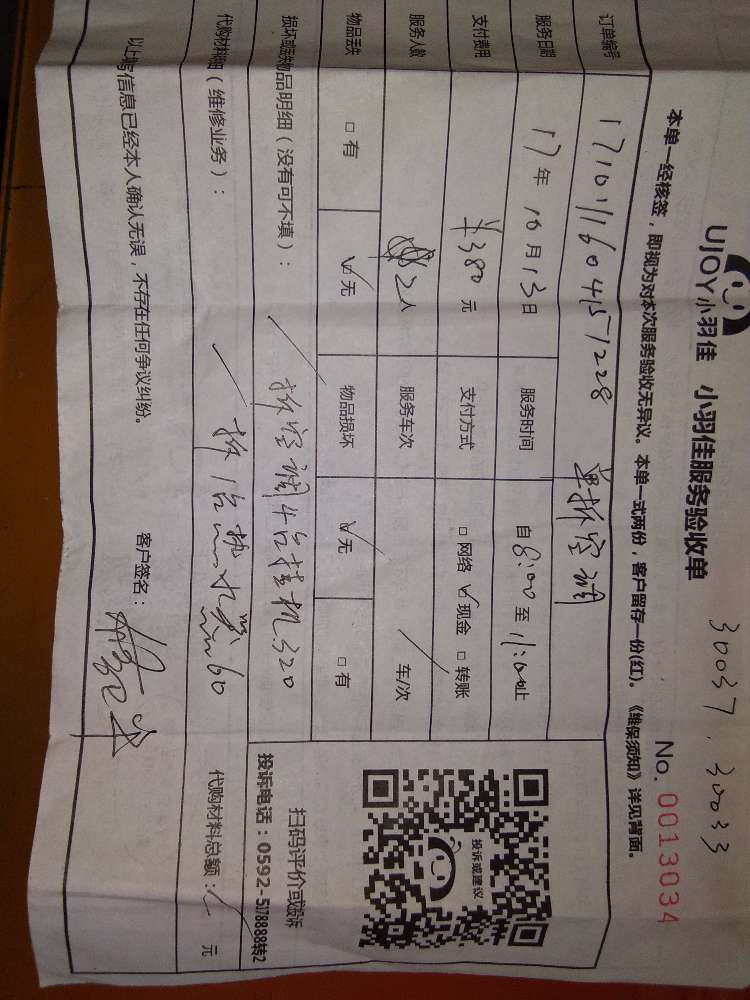 30037.30033
UJOY小羽佳 小羽佳服务验收单
No. 0013034
本单一经核签，即视为对本次服务验收无异议。本单一式两份，客户留存一份(红)。《维保须知》详见背面。
订单编号 1710111604151228 单拆空调
服务日期 17年 10月 13日 服务时间 自8:00至11:00止
支付费用 ¥380元 支付方式 □网络 ☑现金 □转账
服务人数 2人 服务车次 / 车/次
物品丢失 □有 ☑无 物品损坏 ☑无 □有
损坏或丢失物品明细（没有可不填）： / 拆空调4台挂机320
代购材料明细（维修业务）： / 拆1台热水器60 代购材料总额： 元
以上填写信息已经本人确认无误，不存在任何争议纠纷。 客户签名：
投诉或建议
扫码评价或投诉
投诉电话：0592-5178888转2